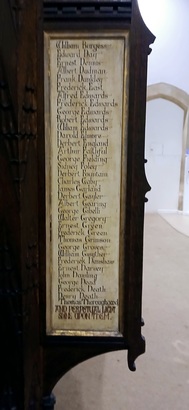 William Burgess
Edward Day
Ernest Dennis
Albert Dudman
Frank Dunkley
Frederick East
Alfred Edwards
Frederick Edwards
George Edwards
Robert Edwards
William Edwards
Harold Elmore
Herbert England
Arthur Faithful
George Fielding
Sidney Foley
Herbert Fountain
Charles Gaby
James Garland
Herbert
Albert Gearing
George Gibelli
Walter Gregory
Ernest Green
Frederick Green
Thomas Grimson
George Groves
William Gunther
Frederick
Ernest
John Dowling
George Dead
Frederick Death
Henry Death
Thomas Thoroughgood
AND PERPETUAL LIGHT
SHINE UPON THEM